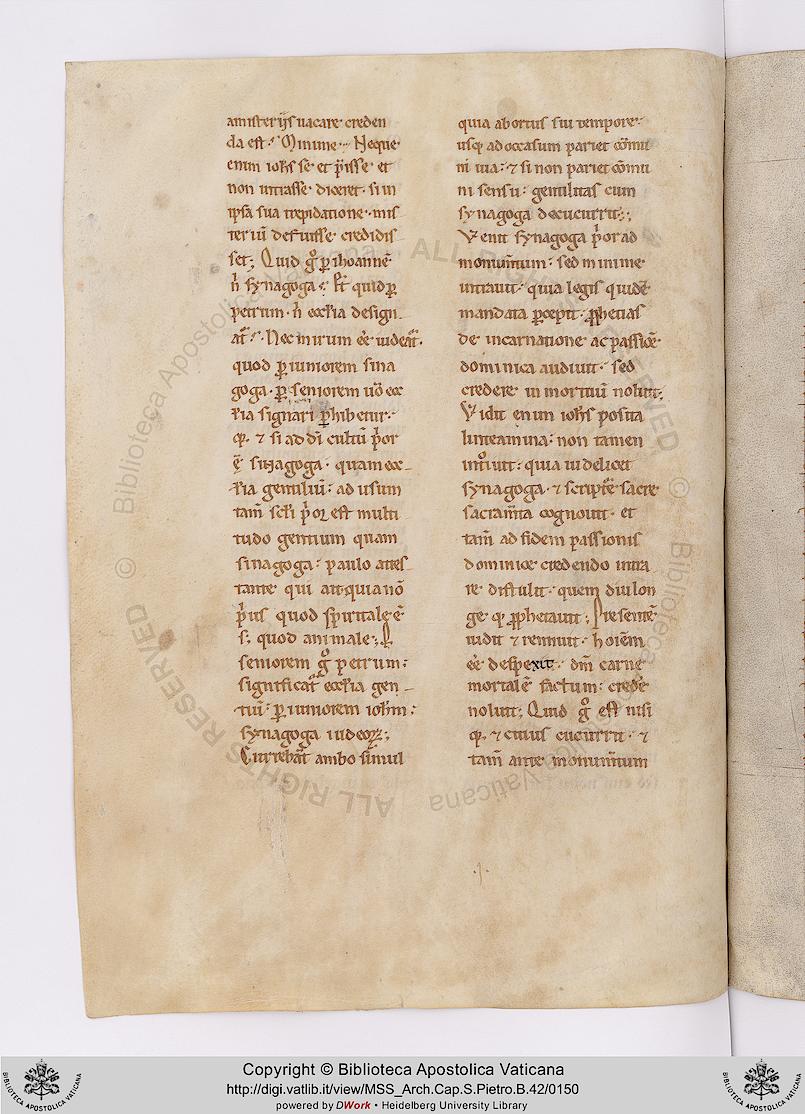 amisteriis uacare creden
da est? Minime. Neque
enim ioħs se et p̄isse et
non intrasse diceret. si in
ipsā sua trepidatione. mis
teriū defuisse credidis
set; Quid gͦ p̱ ihoannē
ñ synagoga? Et quid p̱
petrum. ñ eccl̄ia design
at̄? Nec mirum eē uideat̄.
quod p̱ iuniorem sina
goga. p̱ seniorem uͦo ec
cl̄ia signari p̱hibetur.
q̵. ⁊ si ad dī cultū p̄or
ē sinagoga. quam ec
cl̄ia gentiliū. ad usum
tam̄ scl̄i p̄or est multi
tudo gentium quam
sinagoga. paulo attes
tante qui ait. quia nō
p̄ius quod spiritale ē
s; quod animale;
seniorem gͦ petrum.
significat̄ eccl̄ia gen
tiū. p̱ iuniorem ioħm.
synagoga iudeoꝝ;
Currebāt ambo simul
quia abortus sui tempore.
usq; ad occasum pariet cōmu
ni uia. ⁊ si non pariet cōmu
ni sensu. gentilitas cum
synagoga decucurrit;
Venit synagoga p̄or ad
monum̄tum. sed minime
intrauit. quia legis quidē
mandata p̱cepit. ꝓphetias
de incarnatione ac passiōe
dominica audiuit. sed
credere in mortuū noluit;
Vidit enim ioħs posita
linteamina. non tamen
intͦiuit. quia uidelicet
synagoga. ⁊ scripturē sacre
sacram̄ta cognouit. et
tam̄ ad fidem passionis
dominice credendo intra
re distulit. quem diu lon
ge q̵ ꝓphetauit; Presentē
uidit ⁊ rennuit. hoīem
eē despexit. dm̄ carne
mortalē factum. crede
noluit; Quid gͦ est nisi
q̵. ⁊ citius cucurrit. ⁊
tam̄ ante monum̄tum
Copyright © Biblioteca Apostolica Vaticana
http://digi.vatlib.it/view/MSS_Arch.Cap.S.Pietro.B.42/0150
powered by DWork • Heidelberg University Library